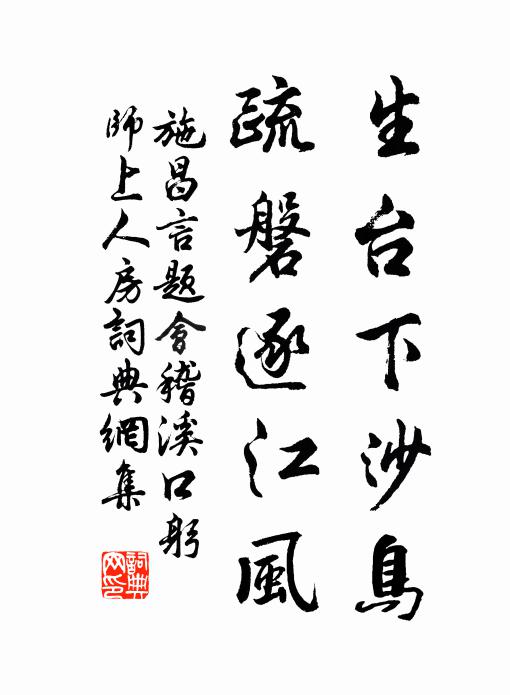 生台下沙鳥
疏磬逐江風
施昌言題會稽溪口躬
師上人房詞典網集
詞典網印